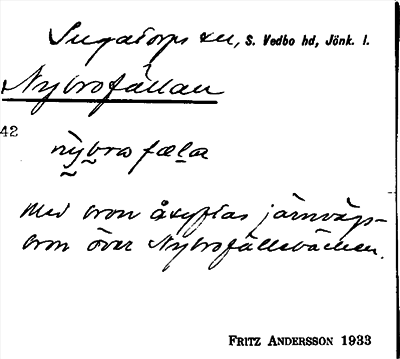 Ingatorps sn, S. Vedbo hd, Jönk. l.
Nybrofällan
42
nỳbro fæla
Med bron åsyftas järnvägs-
bron över Nybrofällsbäcken.
FRITZ ANDERSSON 1933